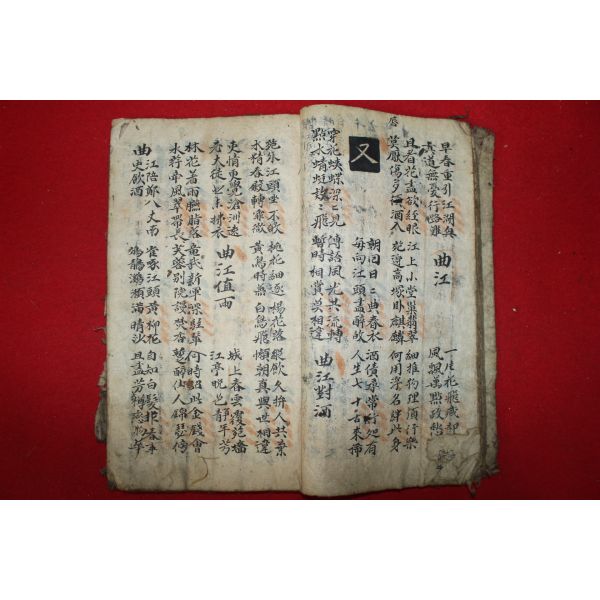 早春重引江湖興 一片花飛減却
直道無憂行路難 曲江 風飄萬點政愁
且看花盡欲經眼 江上小堂巢翡翠 細推物理須行樂
莫厭傷多酒入唇 苑邊高塚臥麒麟 何用浮名絆此身
又 朝回日〻典春衣 酒債尋常行處有
每向江頭盡醉歸 人生七十古來稀
穿花蛺蝶深〻見 傳語風光共流轉 曲江對酒
點水蜻蜓款〻飛 暫時相賞莫相違
苑外江頭坐不歸 桃花細逐楊花落 縱飲久拚人共棄
水精春殿轉霏微 黃鳥時兼白鳥飛 懶朝真與世相違
吏情更覺滄洲遠 曲江值雨 城上春雲覆苑墻
老大徒悲未拂衣 江亭晚色靜年芳
林花著雨臙脂落 龍武新軍深駐輦 何時詔此金錢會
水荇牽風翠帶長 芙蓉別院謾焚香 暫醉仙人錦瑟傍
曲江陪鄭八丈南 雀啄江頭黃柳花 自知白髮非春事
史飲酒 鵁鶄鸂鶒滿晴沙 且盡芳樽戀物華